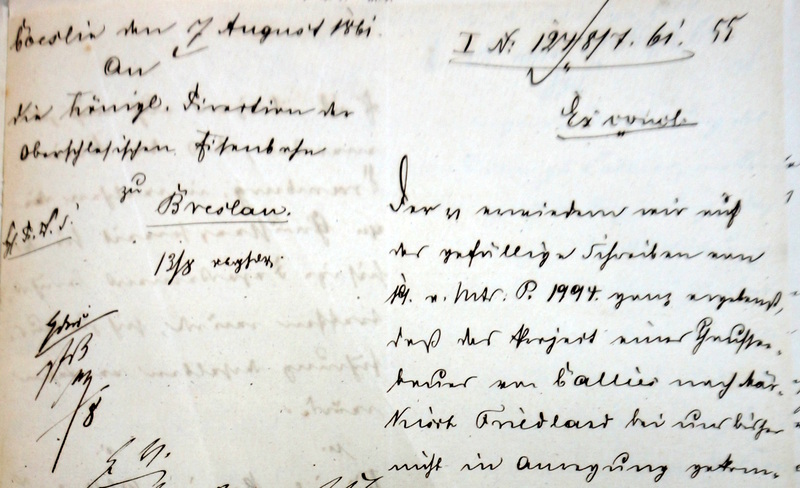 Coeslin den 7 August 1861.
An
die Königl. Direction der
Oberschlesischen Eisenbahn
zu
Breslau.
13/8
I N: 124/8/7. 61. 55
Ex conc.
Der erwiedern wir auf
das gefällige Schreiben vom
v. Mts. P. 1994. ganz ergebenst,
daß das Project eines Chaussee-
baues von Callies nach Mär-
kisch Friedland bei uns bisher
nicht in Anregung gekom-